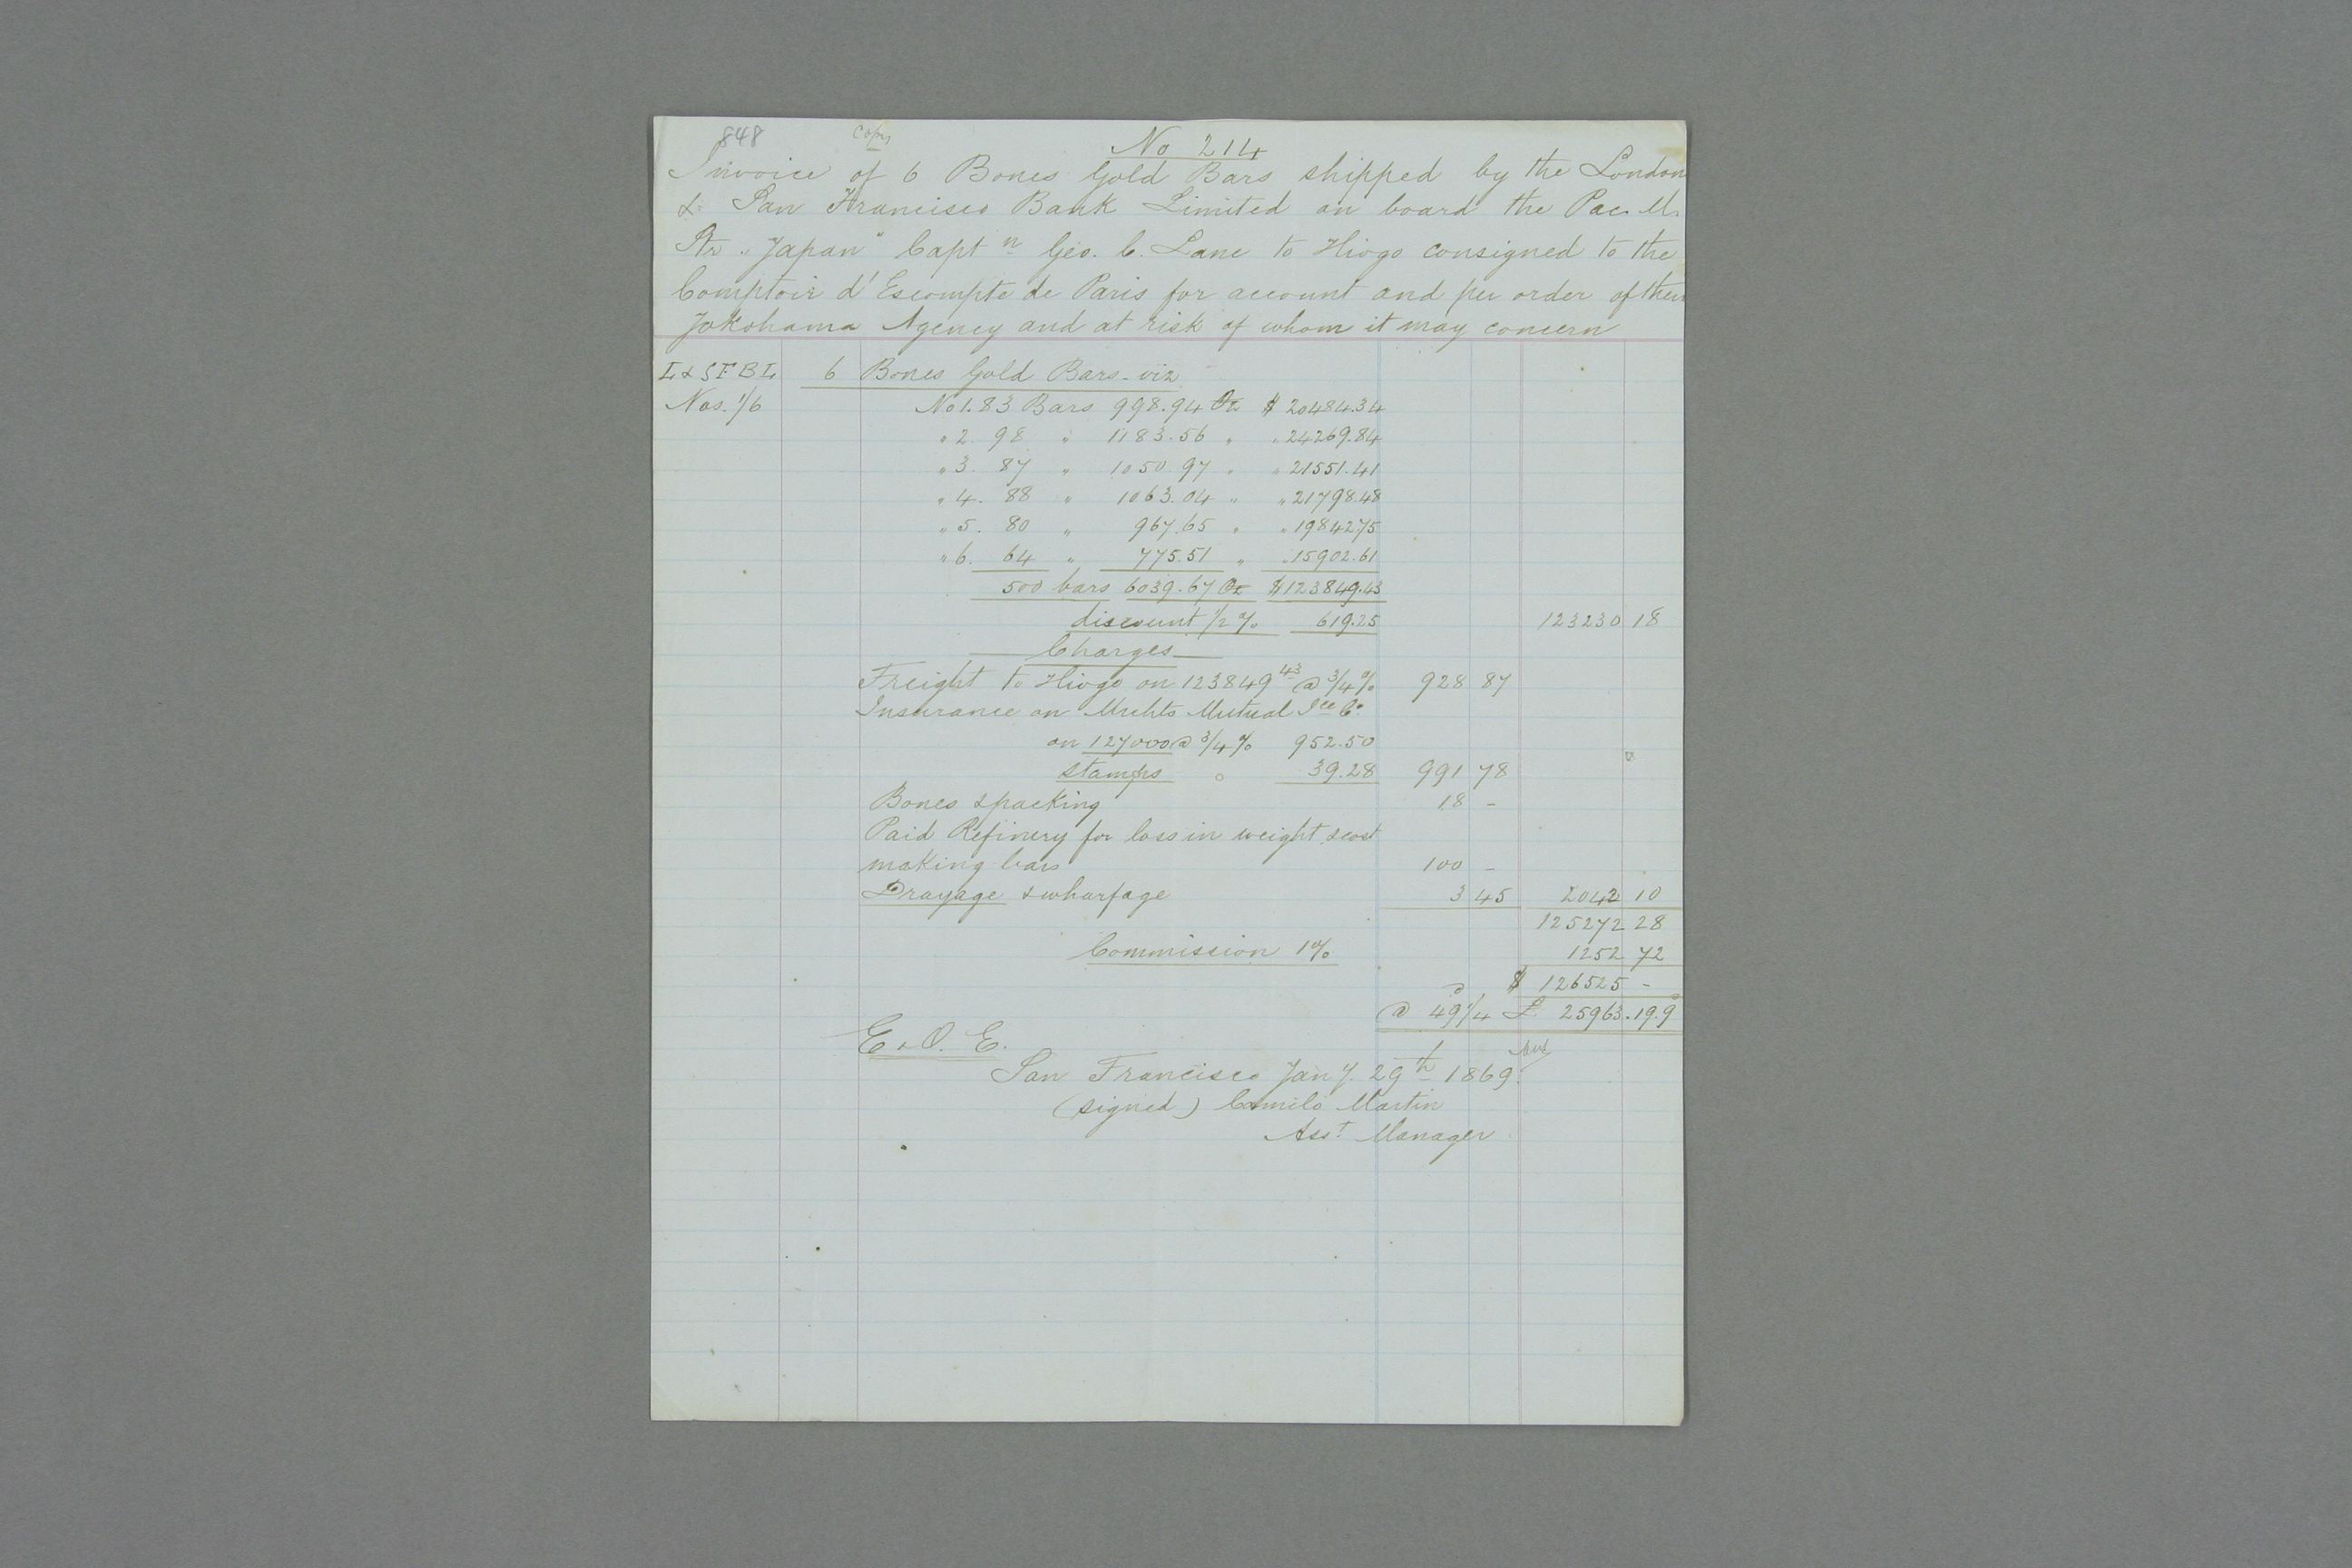 848 Copy No 214
Invoice of 6 Boxes Gold Bars shipped by the London
& San Francisco Bank Limited on board the Pac. M.
Str "Japan" Captn Geo. C. Lane to Hiogo consigned to the
Comptoir d'Escompte de Paris for account and per order of their
Yokohama Agency and at risk of whom it may concern
L & S F B L 6 Boxes Gold Bars - viz
Nos. 1/6 No 1. 83 Bars 998.94 Oz $ 20484.34
" 2. 98 " 1183.56 " " 24269.84
" 3. 87 " 1050.97 " " 21551.41
" 4. 88 " 1063.04 " " 21798.48
" 5. 80 " 967.65 " " 19842.75
" 6. 64 " 775.51 " " 15902.61
500 bars 6039.67 Oz $ 123849.43
discount 1/2 % 619.25 123230 18
Charges
Freight to Hiogo on 123849 43 @ 3/4 % 928 87
Insurance on Mrchts Mutual Ice Co
on 127000 @ 3/4 % 952.50
stamps 39.28 991 78
Boxes & packing 18 -
Paid Refinery for loss in weight & cost
making bars 100 -
Drayage & wharfage 3 45 2042 10
125272 28
Commission 1 % 1252 72
$ 126525 -
@ 49 1/4 £ 25963.19.9
E. & O. E.
San Francisco Jany. 29th 1869.
(signed) Camilo Martin
Asst Manager